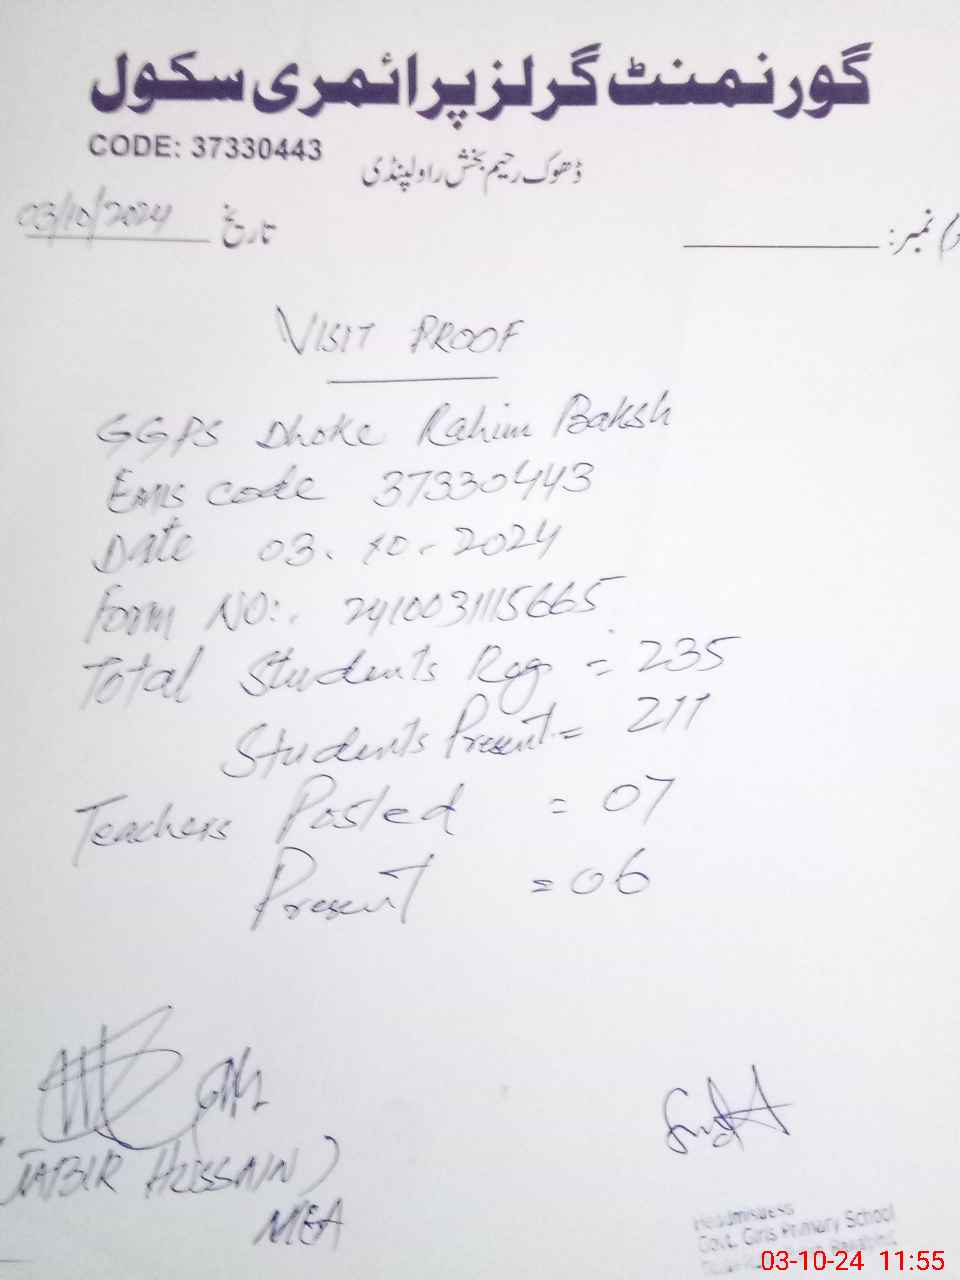 گورنمنٹ گرلز پرائمری سکول
CODE: 37330443
ڈھوک رحیم بخش راولپنڈی
03/10/2024 تاریخ
نمبر:
VISIT PROOF
GGPS Dhoke Rahim Baksh
EMIS code 37330443
Date 03.10.2024
Form NO:. 241003115665
Total Students Reg = 235
Students Present = 211
Teachers Posted = 07
Present = 06
(JABIR HUSSAIN)
MEA
Headmistress
Govt. Girls Primary School
03-10-24 11:55